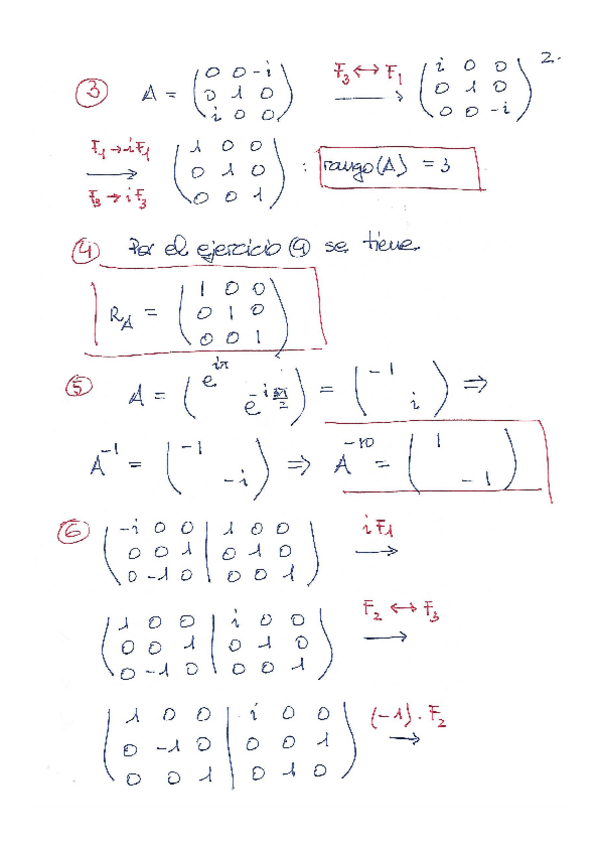 2.
③ A = (0 0 -i; 0 1 0; i 0 0) F₃ ↔ F₁ → (i 0 0; 0 1 0; 0 0 -i)
F₁ → iF₁ F₃ → iF₃ → (1 0 0; 0 1 0; 0 0 1) : rango(A) = 3
④ Por el ejercicio ④ se tiene.
R_A = (1 0 0; 0 1 0; 0 0 1)
⑤ A = (e^{iπ} ; e^{-i3π/2}) = (-1 ; i) ⇒
A⁻¹ = (-1 ; -i) ⇒ A⁻¹⁰ = (1 ; -1)
⑥ (-i 0 0 | 1 0 0; 0 0 1 | 0 1 0; 0 -1 0 | 0 0 1) iF₁ →
(1 0 0 | i 0 0; 0 0 1 | 0 1 0; 0 -1 0 | 0 0 1) F₂ ↔ F₃ →
(1 0 0 | i 0 0; 0 -1 0 | 0 0 1; 0 0 1 | 0 1 0) (-1)·F₂ →